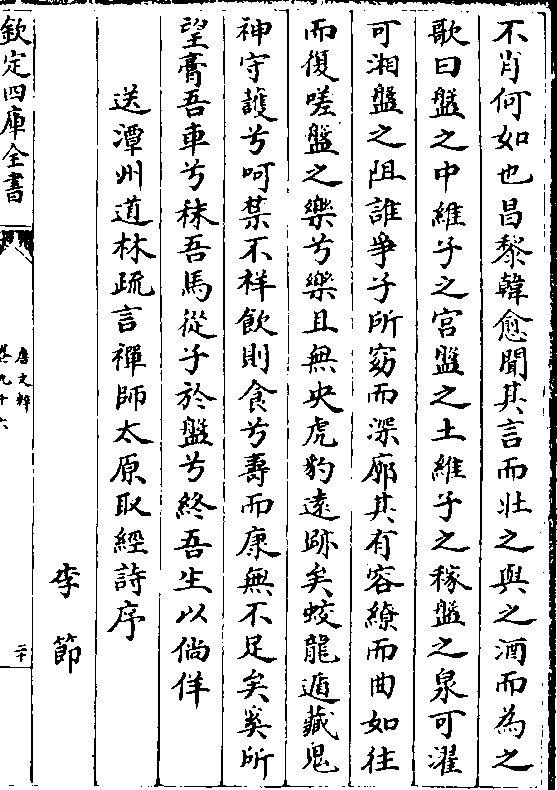 不肖何如也昌黎韓愈聞其言而壯之與之酒而為之
歌曰盤之中維子之宮盤之土維子之稼盤之泉可濯
可湘盤之阻誰爭子所窈而深廓其有容繚而曲如往
而復嗟盤之樂兮樂且無央虎豹遠跡矣蛟龍遁藏鬼
神守護兮呵禁不祥飲則食兮壽而康無不足矣奚所
望膏吾車兮秣吾馬從子於盤兮終吾生以倘佯
送潭州道林疏言禪師太原取經詩序
李節
欽定四庫全書
唐文粹
卷九十六
二十